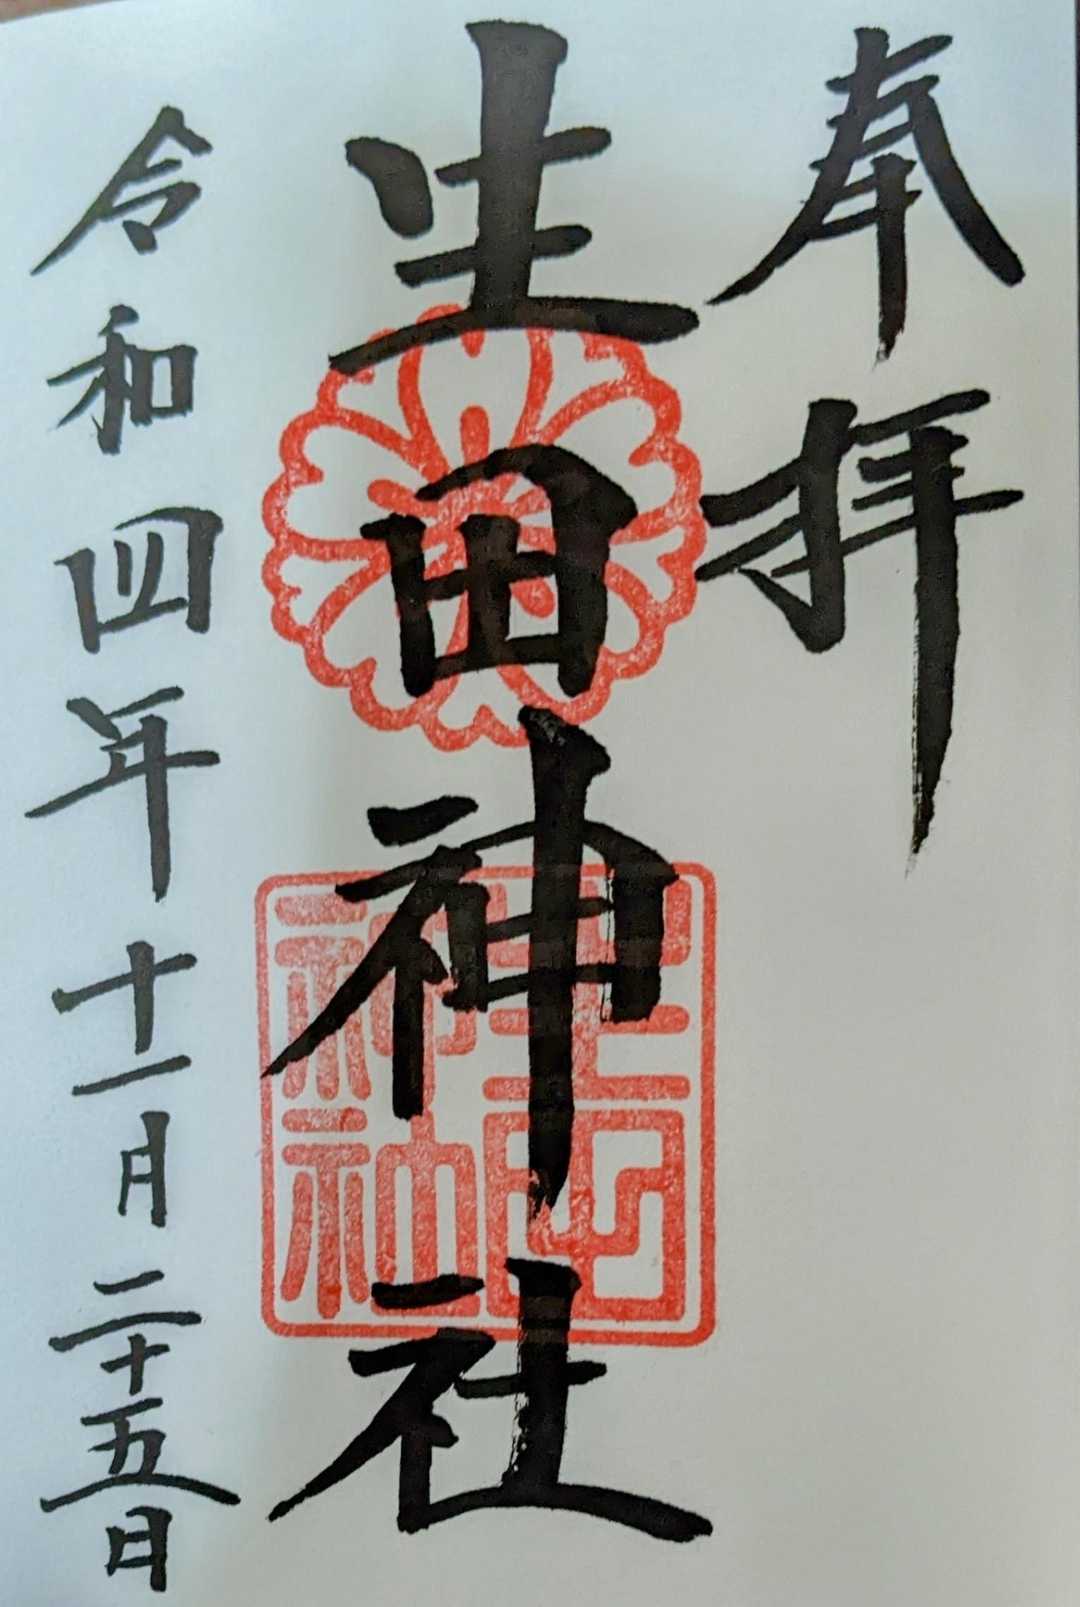 奉拝
生田神社
生田神社
令和四年十一月二十五日